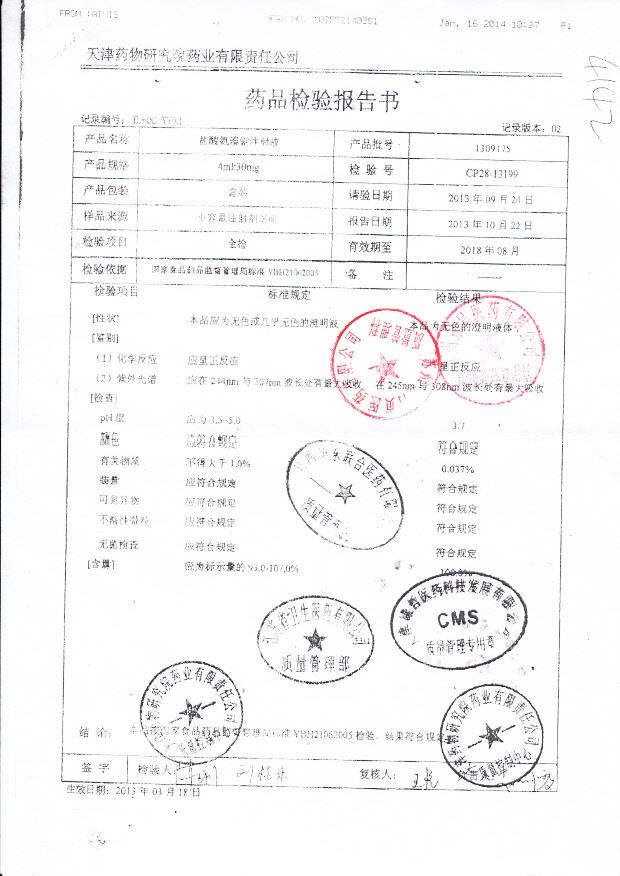 Jan. 16 2014 10:27 P1
4142
天津药物研究院药业有限责任公司
药品检验报告书
记录编号: 记录版本: 02
产品名称 盐酸氨溴索注射液 产品批号 1309175
产品规格 4ml:30mg 检验号 CP28-13199
产品包装 盒装 请验日期 2013 年 09 月 24 日
样品来源 小容量注射剂车间 报告日期 2013 年 10 月 22 日
检验项目 全检 有效期至 2018 年 08 月
检验依据 国家食品药品监督管理局标准 YBH21062005 备注 ——
检验项目 标准规定 检验结果
[性状] 本品应为无色或几乎无色的澄明液 本品为无色的澄明液体
[鉴别]
(1) 化学反应 应呈正反应 呈正反应
(2) 紫外光谱 应在 244nm 与 307nm 波长处有最大吸收 在 245nm 与 308nm 波长处有最大吸收
[检查]
pH 值 应为 3.5-5.0 3.7
颜色 应符合规定 符合规定
有关物质 不得大于 1.0% 0.037%
装量 应符合规定 符合规定
可见异物 应符合规定 符合规定
不溶性微粒 应符合规定 符合规定
无菌检查 应符合规定 符合规定
[含量] 应为标示量的 93.0-107.0% 100.0%
CMS
质量管理专用章
质量管理部
结论: 国家食品药品监督管理局标准 YBH21062005 检验, 结果符合规定
签字 检验人: 复核人:
生效日期: 2013 年 03 月 18 日